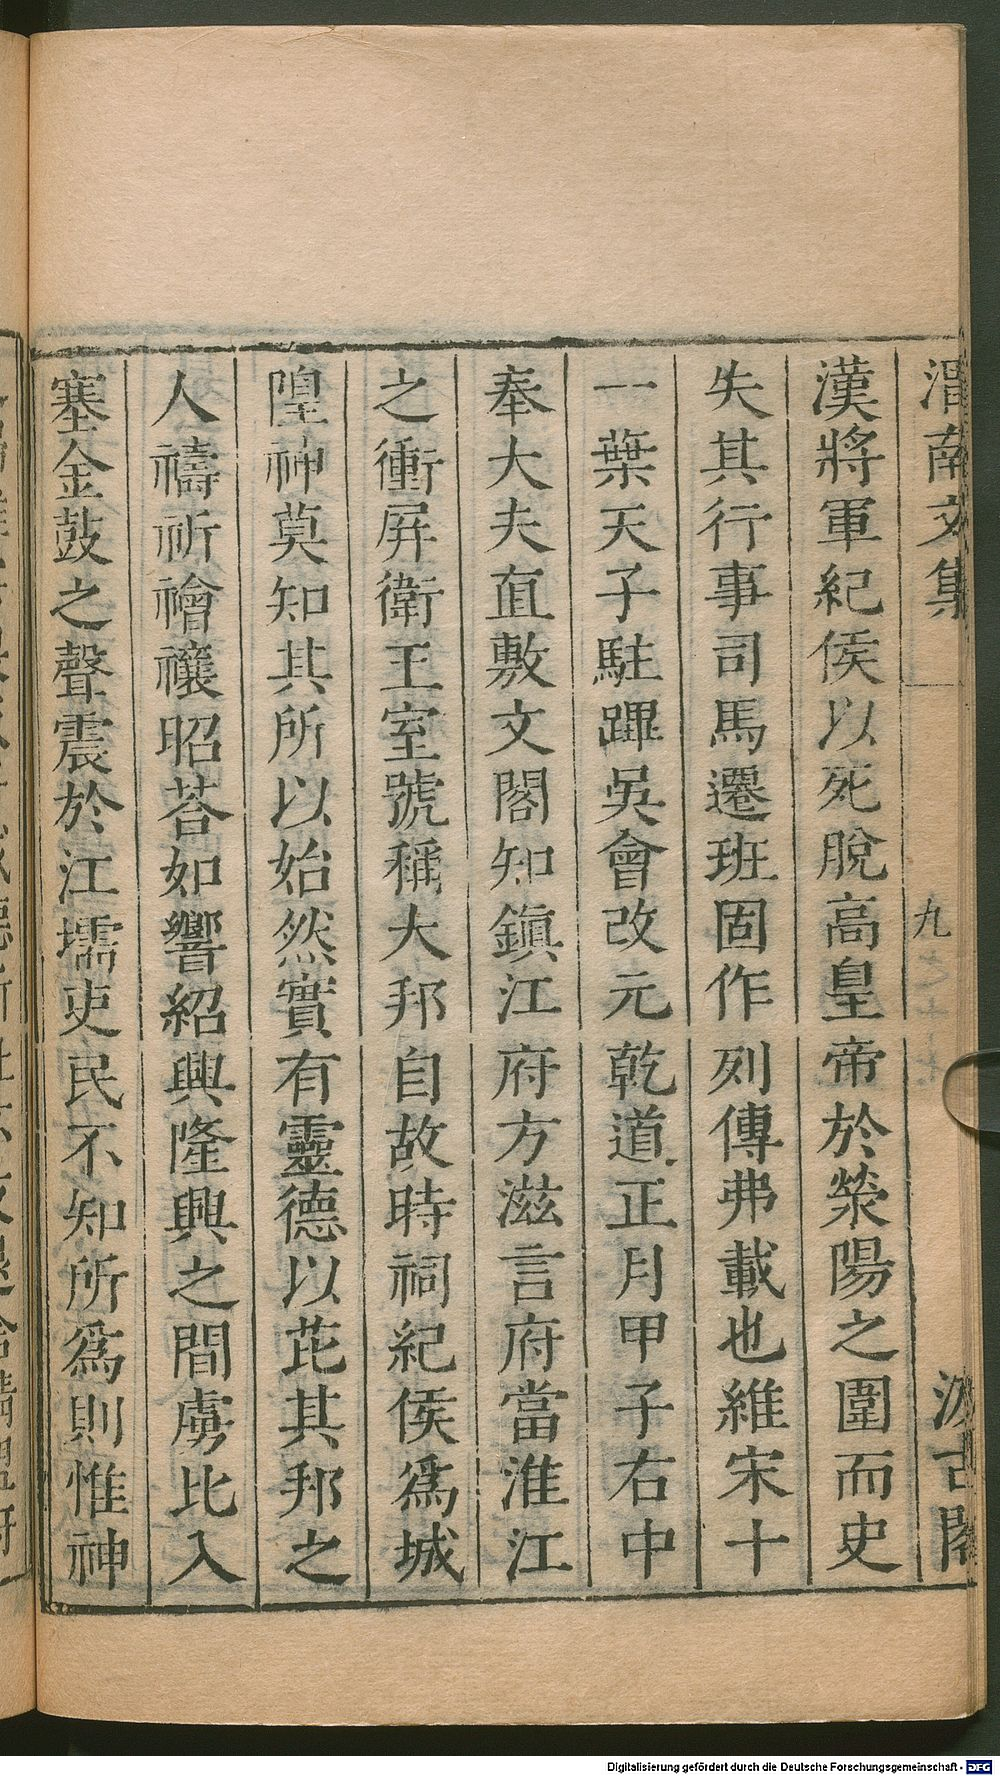 渭南文集
九
汲古閣
漢將軍紀侯以死脫高皇帝於滎陽之圍而史
失其行事司馬遷班固作列傳弗載也維宋十
一葉天子駐蹕吳會改元乾道正月甲子右中
奉大夫直敷文閣知鎮江府方滋言府當淮江
之衝屏衛王室號稱大邦自故時祠紀侯爲城
隍神莫知其所以始然實有靈德以芘其邦之
人禱祈禬禳昭荅如響紹興隆興之間虜比入
塞金鼓之聲震於江壖吏民不知所爲則惟神
Digitalisierung gefördert durch die Deutsche Forschungsgemeinschaft - DFG